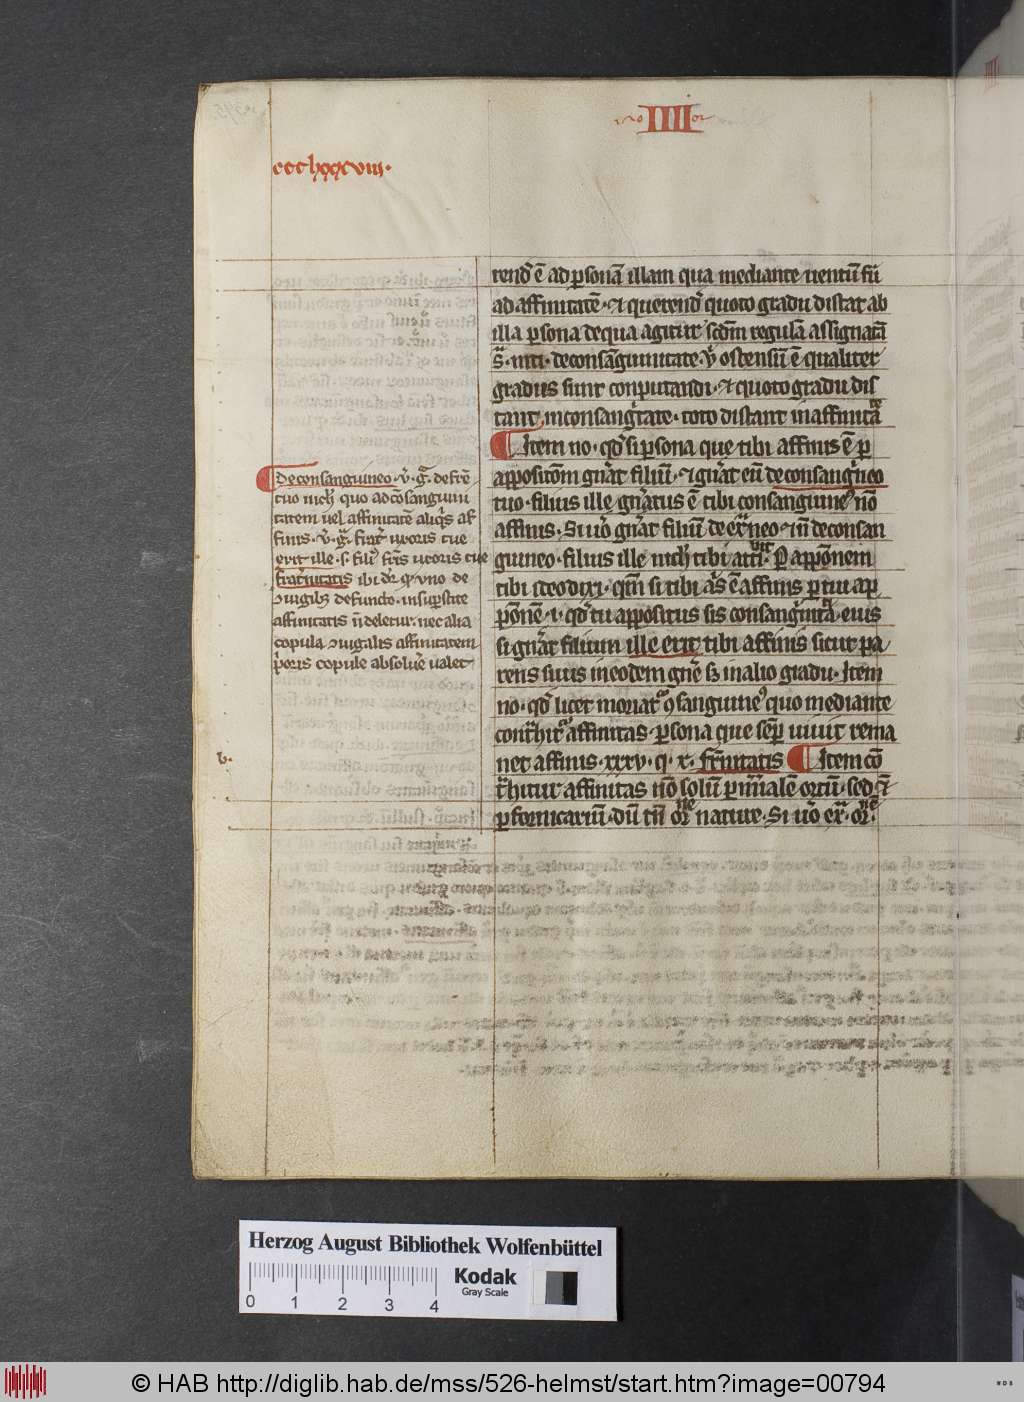 IIII
ccclxxxviii.
rend̄ ē ad p̲sonā illam qua mediante uentū fū
ad affinitatē · ⁊ querend̄ quoto gradu distat ab
illa p̲sona de qua agitur scd̄m regulā assignatā
s̄ · iiii · de consāguinitate vͥ ostensū ē qualiter
gradus sunt conputandi · ⁊ quoto gradu dis
tant in consangͥtate · toto distant in affinitate
¶ Item no · qd̄ si p̲sona que tibi affinis ē p̲
appositōm gn̄at filiū · ⁊ gn̄at eū de consangͥneo
tuo · filius ille gn̄atus ē tibi consanguineꝰ nō
affinis · Si uō gn̄at filiū de ext̄neo · ⁊ n̄ de consan
guineo · filius ille nich̄ tibi atti · P̲ appōnem
tibi ideo dixi · qm̄ si tibi aͥs ē affinis p̲ tui ap
pōnē · i · qd̄ tu appositus sis consangͥnitati eius
si gn̄at filium ille erit tibi affinis sicut pa
rens suus in eodem gn̄e sꝫ in alio gradu · Item
no · qd̄ licet moriatͬ ꝯsanguineꝰ quo mediante
contͣhitͬ affinitas · p̲sona que sēp̲ uiuit rema
net affinis · xxxv · q · x · fr̄nitatis ¶ Item cō
tͣhitur affinitas nō solū p̲ mr̄imalē ortū · sed ⁊
p̲ fornicariū · dū tn̄ ordine nature · Si uō exͣ or
¶ De consanguineo · vͥ · gͣ · de fr̄e
tuo nich̄ quo ad cōsanguini
tatem uel affinitatē aliqͥs af
finis · vͥ · gͣ · fratͥ uxoris tue
erit ille · s · filiꝰ fr̄is uxoris tue
fratͥnitatis ibi dr̄ qͥ uno de
ꝯiugibꝫ defuncto · in sup̲stite
affinitatis iī deletur · nec alia
copula ꝯiugalis affinitatem
pͥoris copule absoluͥe ualet
b.
Herzog August Bibliothek Wolfenbüttel
0 1 2 3 4
Kodak
Gray Scale
© HAB http://diglib.hab.de/mss/526-helmst/start.htm?image=00794